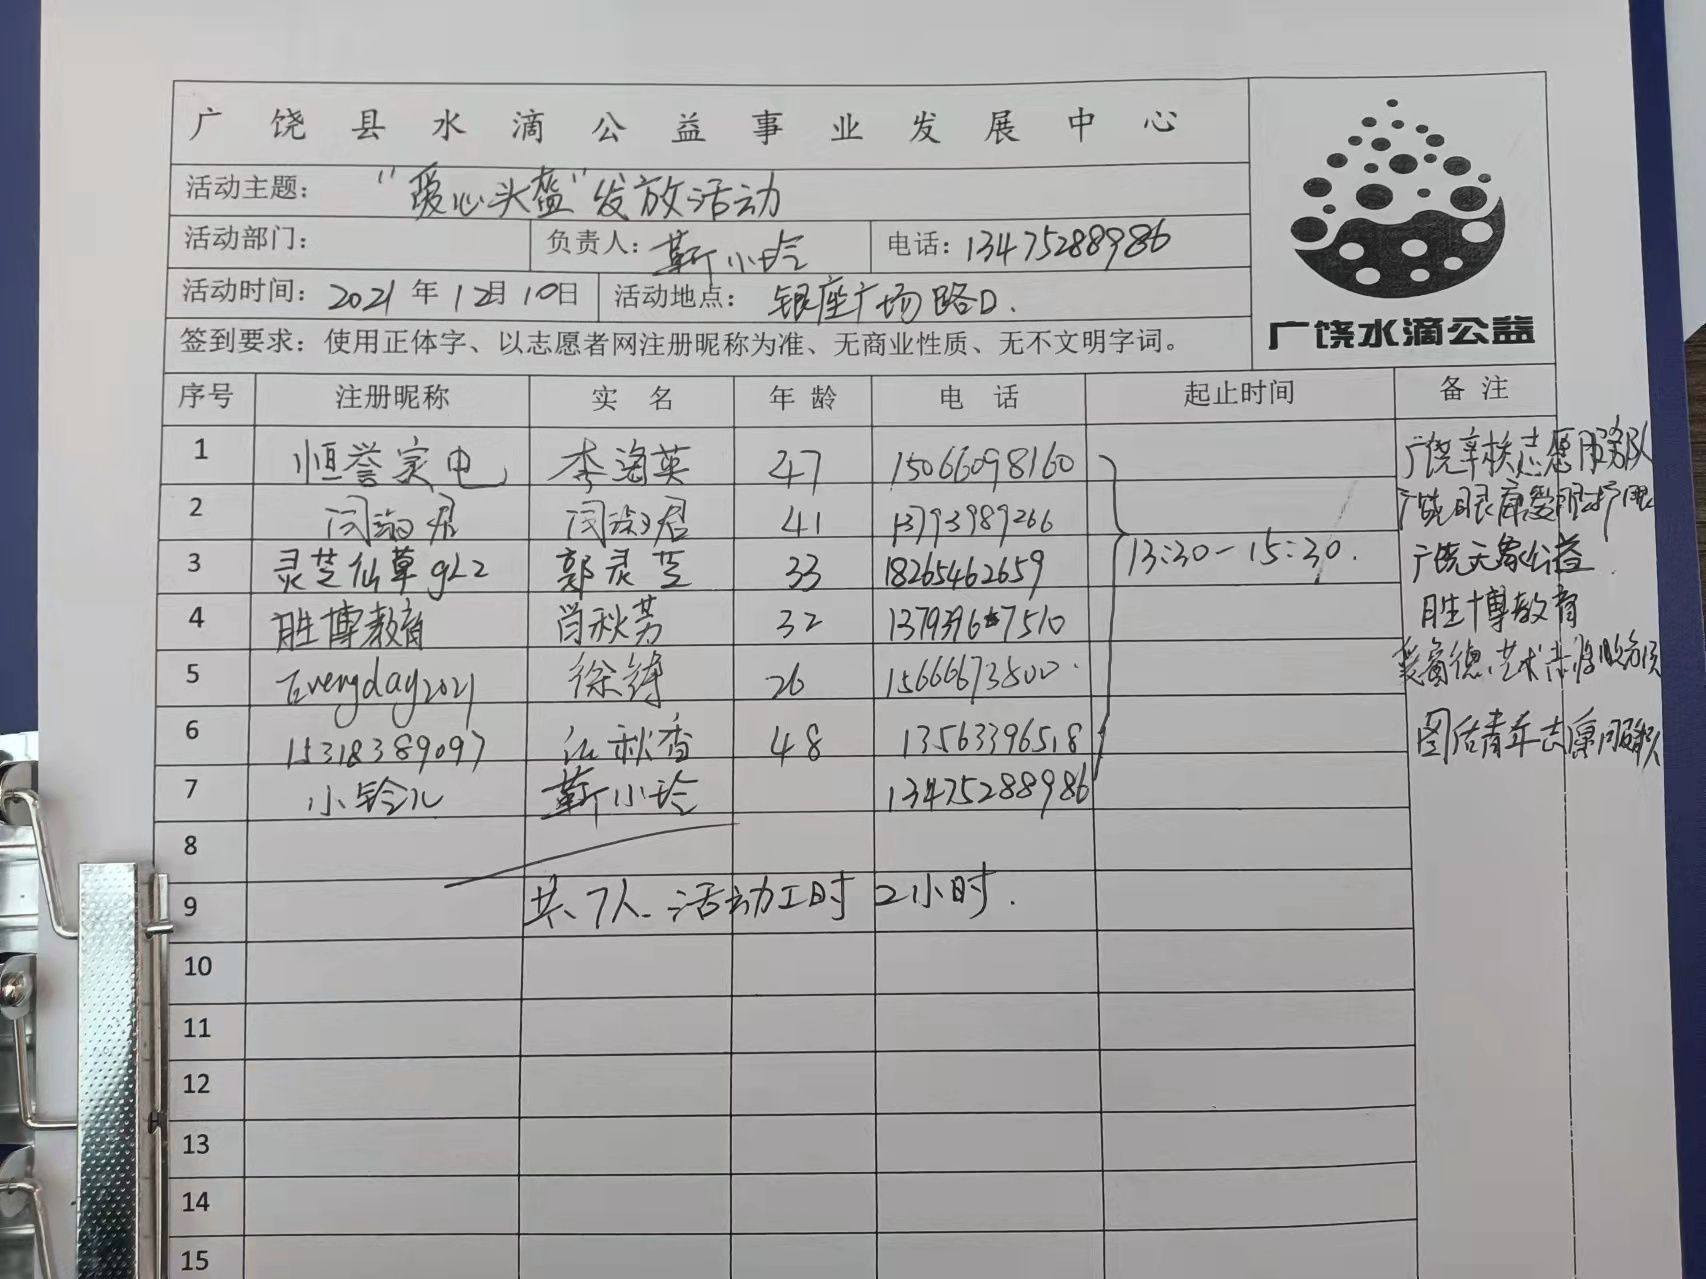 广饶县水滴公益事业发展中心
活动主题： “爱心头盔”发放活动
活动部门： 负责人：靳小玲 电话：13475288986
活动时间：2021年12月10日 活动地点：银座广场路口.
签到要求：使用正体字、以志愿者网注册昵称为准、无商业性质、无不文明字词。
广饶水滴公益
序号 注册昵称 实 名 年 龄 电 话 起止时间 备 注
1 恒誉家电 李海英 47 15066098160 广饶 志愿服务队
2 闫淑君 闫淑君 41 13793989266 广饶眼康
3 灵芝仙草gL2 郭灵芝 33 18265462659 13:30-15:30. 广饶 公益
4 胜博教育 肖秋芳 32 7510 胜博教育
5 Everyday2021 徐 26 15666673500 艺术
6 15318389097 秋香 48 13563396518 青年志愿服务队
7 小铃儿 靳小玲 13475288986
8
9 共7人. 活动工时 2小时.
10
11
12
13
14
15